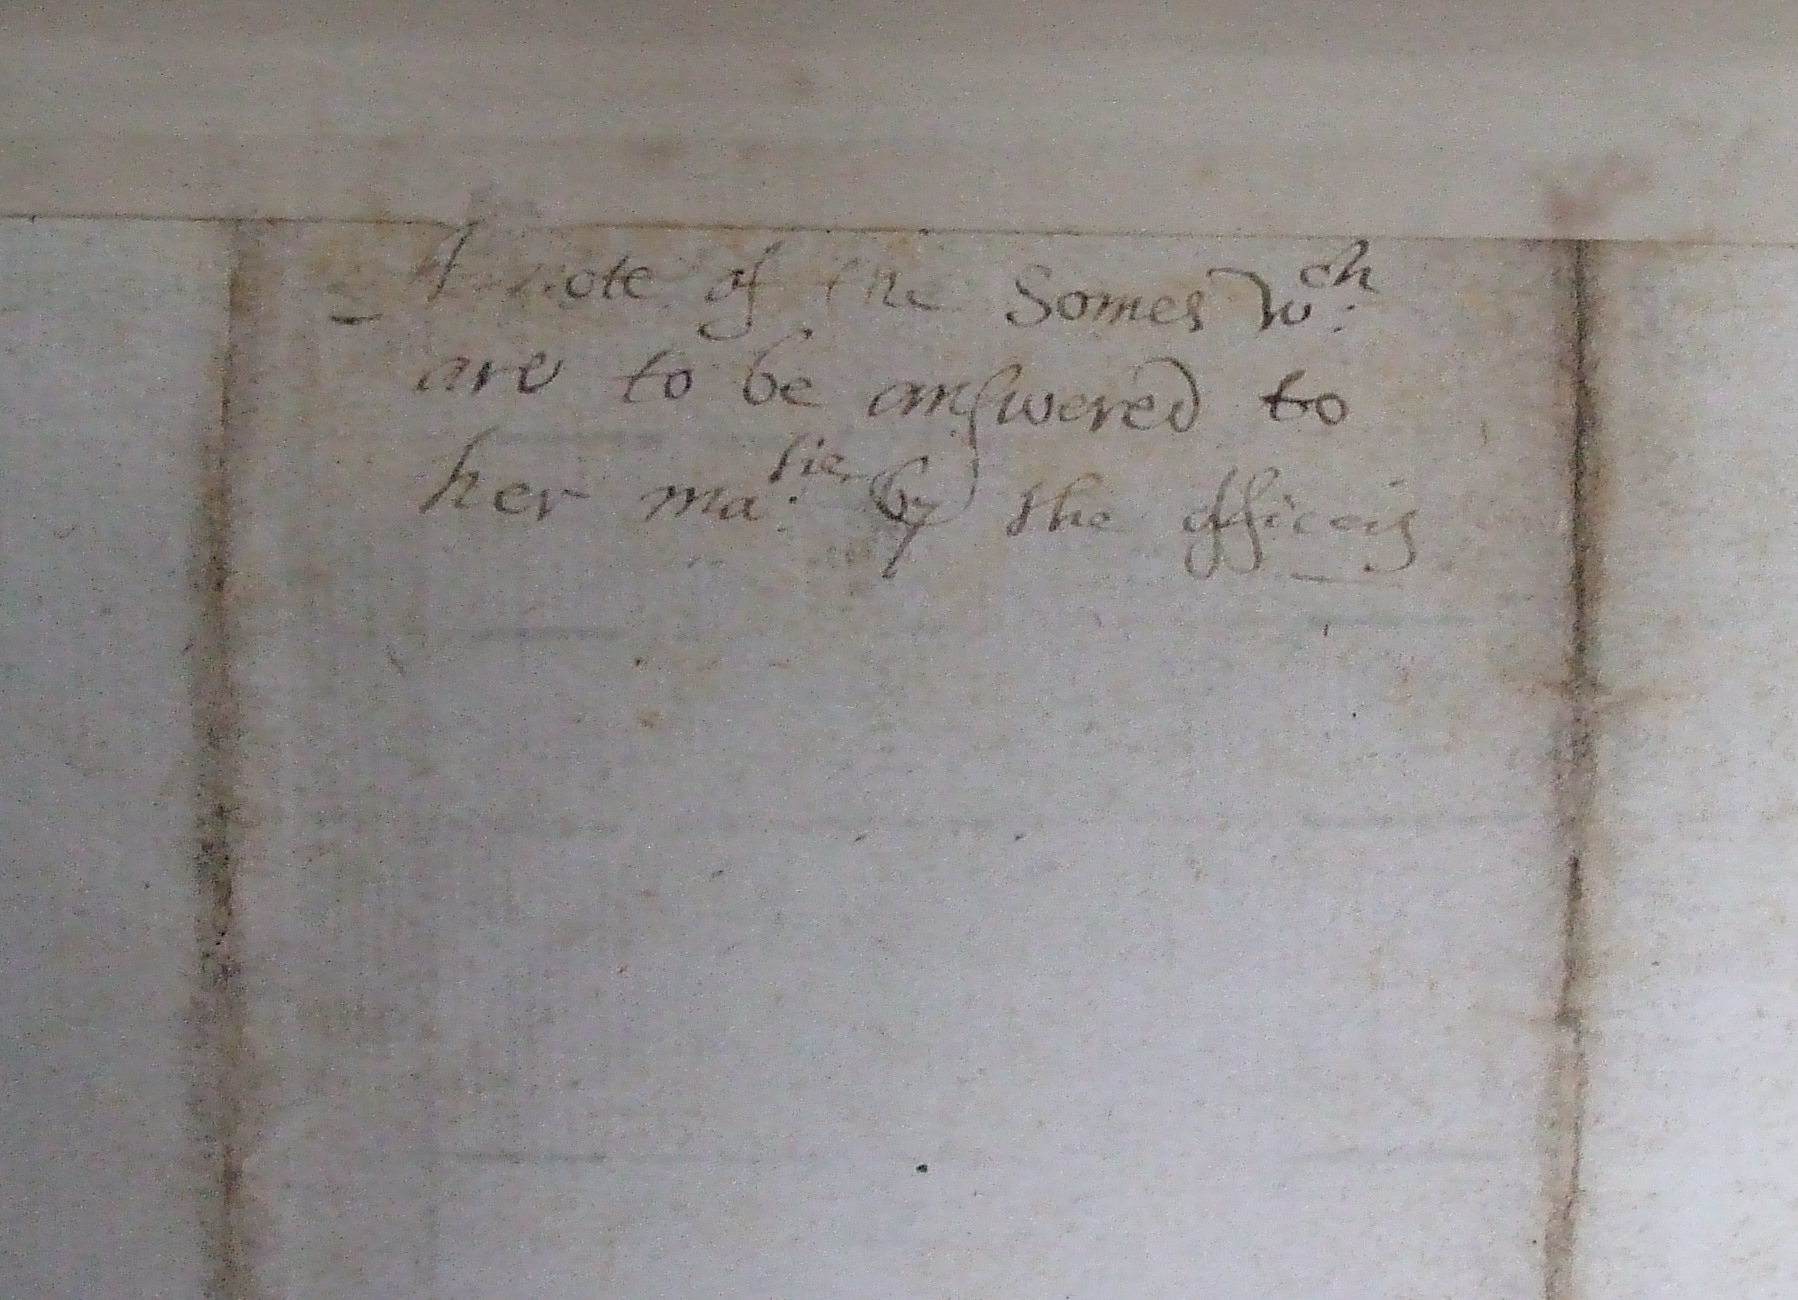 A note of the Somes w:ch
are to be answered to
her ma:tie by the officeis